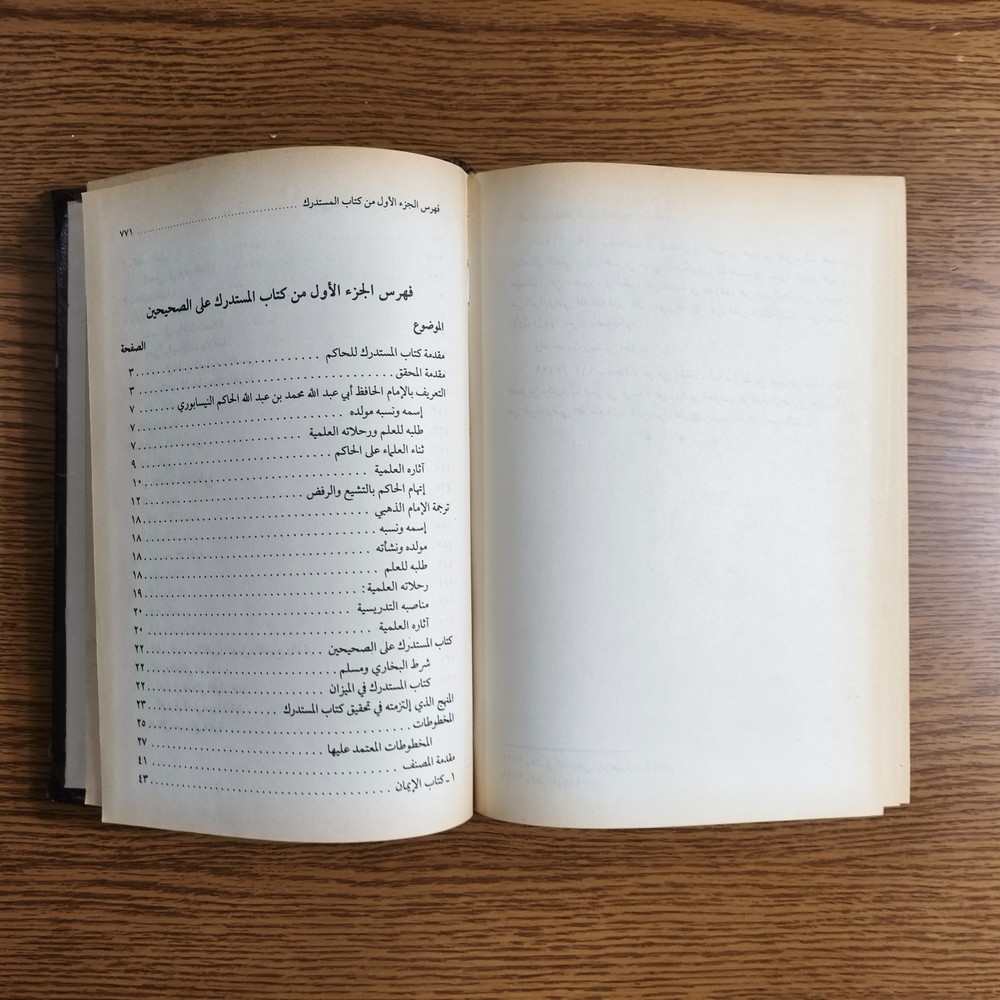 فهرس الجزء الأول من كتاب المستدرك ........................ ٧٧١
فهرس الجزء الأول من كتاب المستدرك على الصحيحين
الموضوع الصفحة
مقدمة كتاب المستدرك للحاكم ........................ ٣
مقدمة المحقق ........................ ٣
التعريف بالإمام الحافظ أبي عبد الله محمد بن عبد الله الحاكم النيسابوري ...... ٧
إسمه ونسبه مولده ........................ ٧
طلبه للعلم ورحلاته العلمية ........................ ٧
ثناء العلماء على الحاكم ........................ ٩
آثاره العلمية ........................ ١٠
إتهام الحاكم بالتشيع والرفض ........................ ١٢
ترجمة الإمام الذهبي ........................ ١٨
إسمه ونسبه ........................ ١٨
مولده ونشأته ........................ ١٨
طلبه للعلم ........................ ١٨
رحلاته العلمية: ........................ ١٩
مناصبه التدريسية ........................ ٢٠
آثاره العلمية ........................ ٢٠
كتاب المستدرك على الصحيحين ........................ ٢٢
شرط البخاري ومسلم ........................ ٢٢
كتاب المستدرك في الميزان ........................ ٢٢
المنهج الذي إلتزمته في تحقيق كتاب المستدرك ............ ٢٣
المخطوطات ........................ ٢٥
المخطوطات المعتمد عليها ........................ ٢٧
مقدمة المصنف ........................ ٤١
١ - كتاب الإيمان ........................ ٤٣